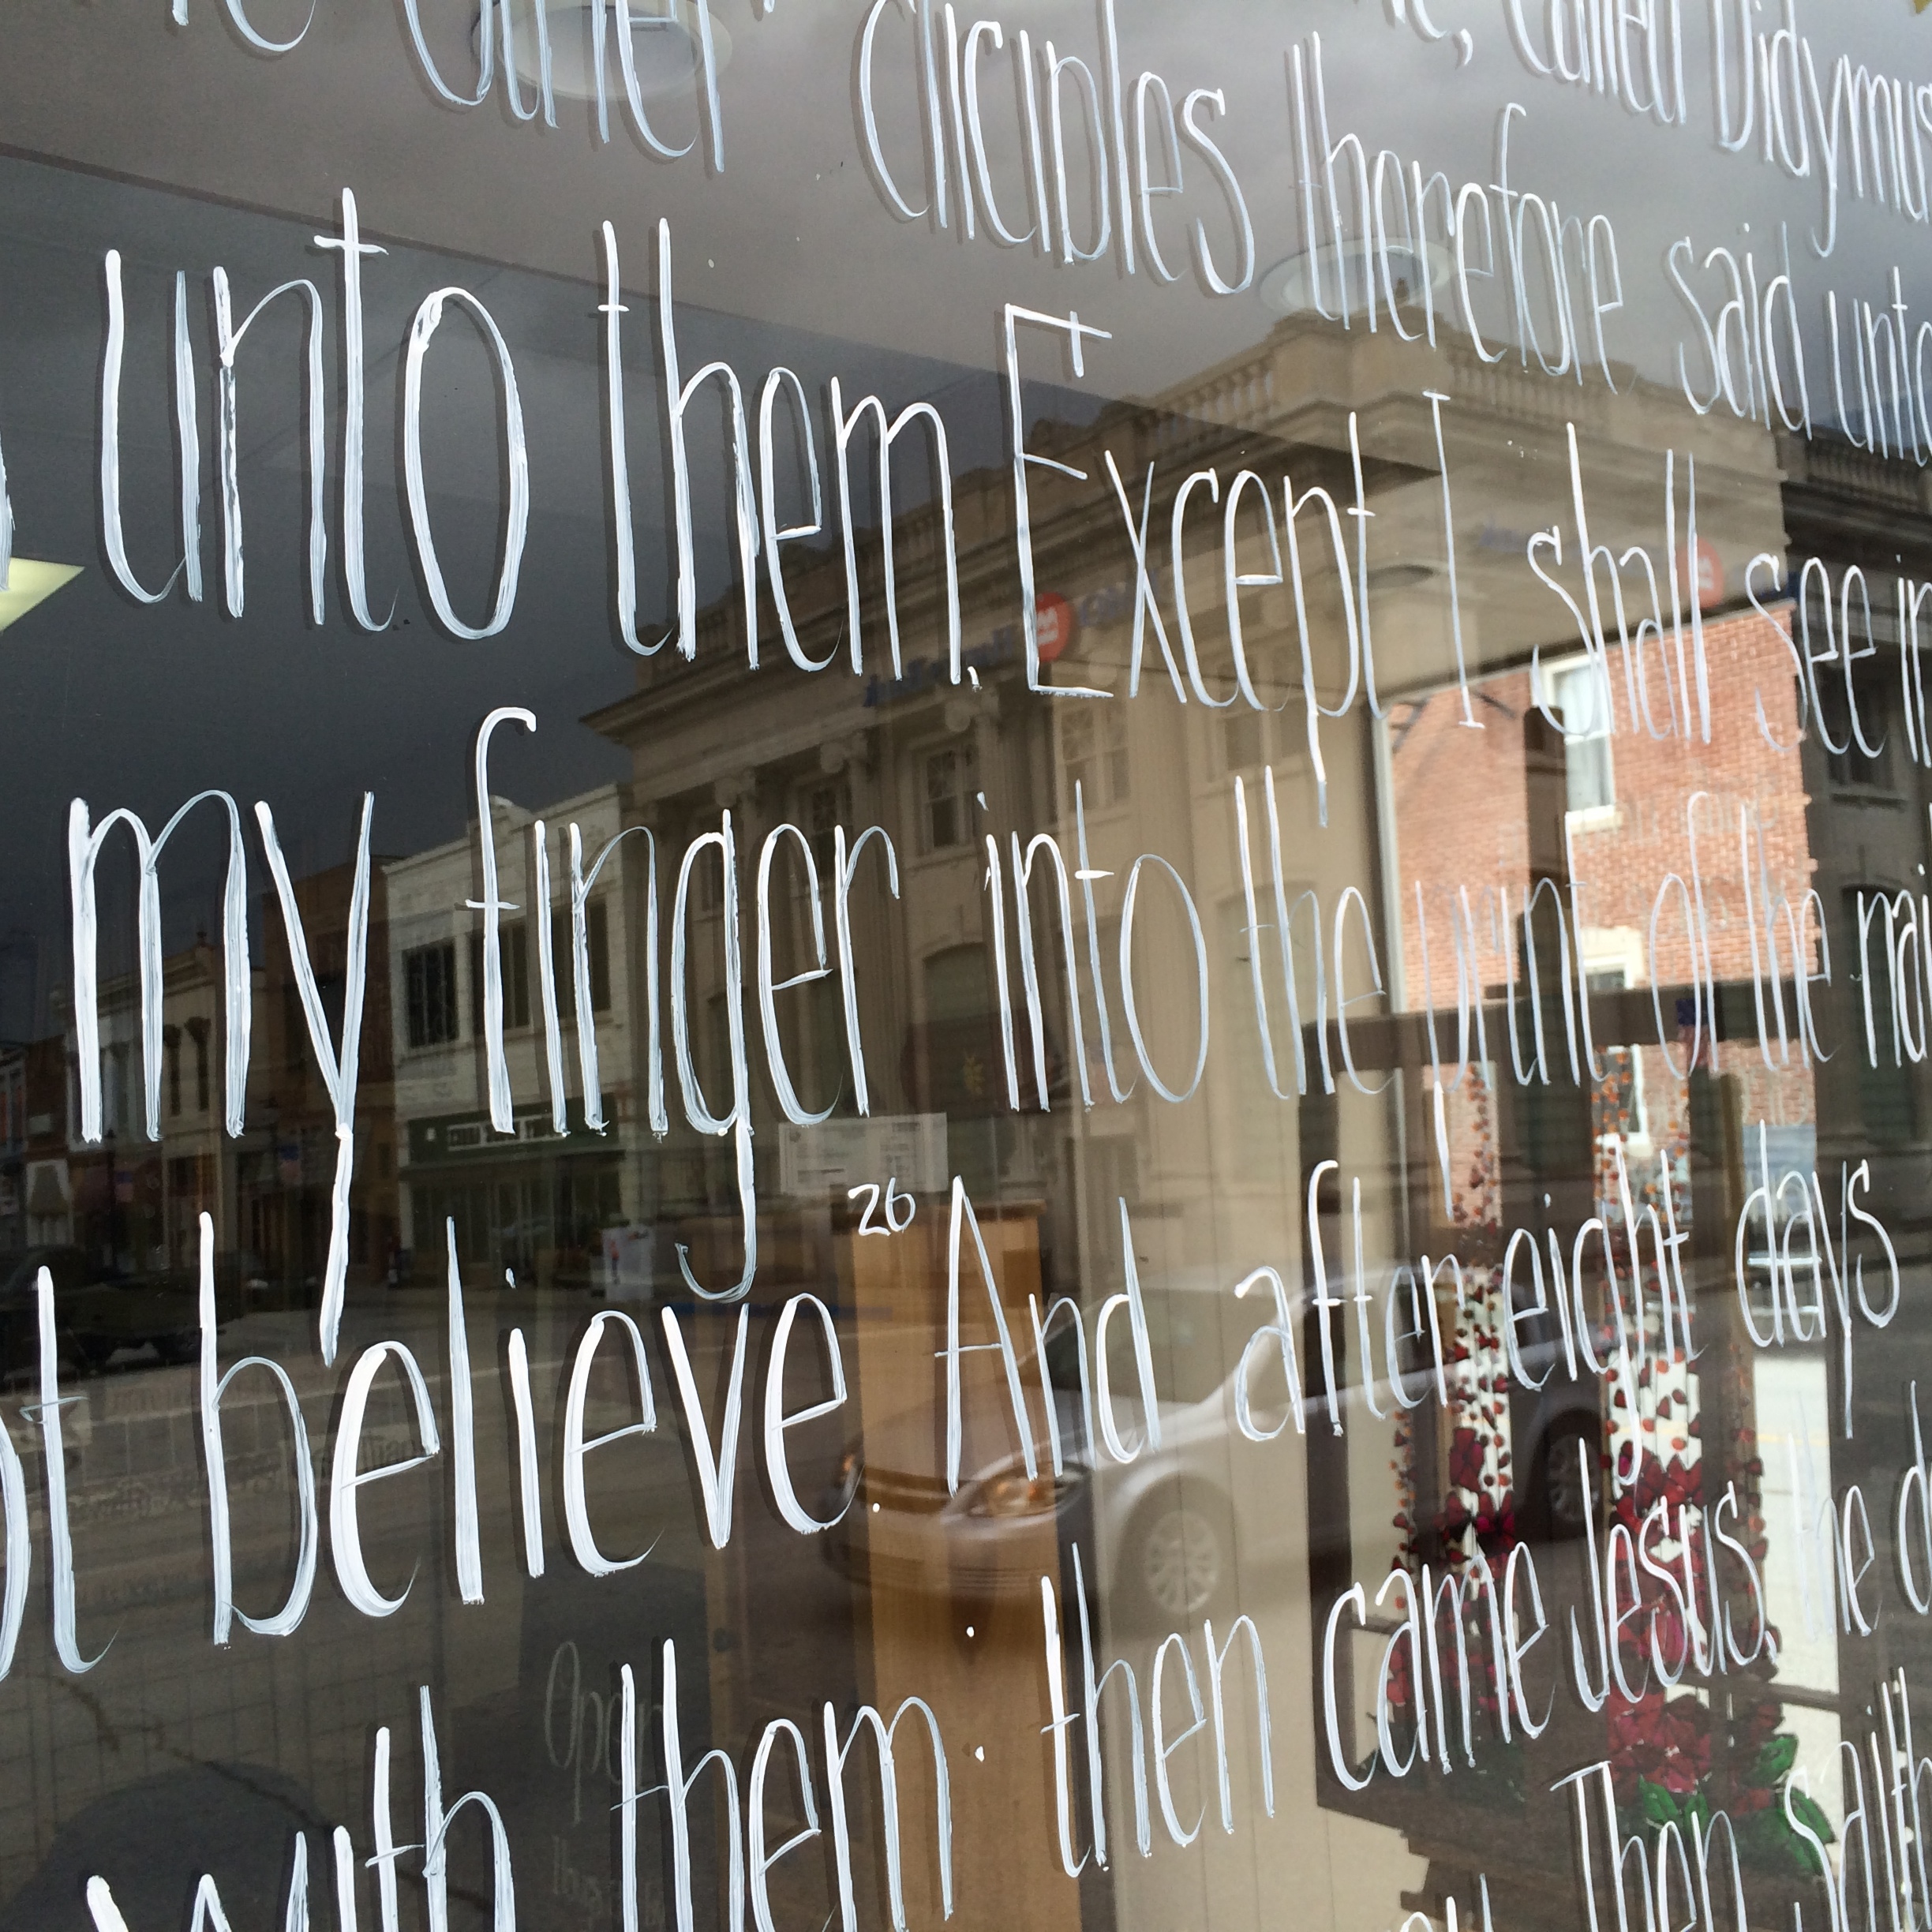 called Didymus
other diciples therefore said unto
unto them. Except I shall see in
my finger into the print of the nai
believe. 26 And after eight days
with them: then came Jesus, the d
Then saith